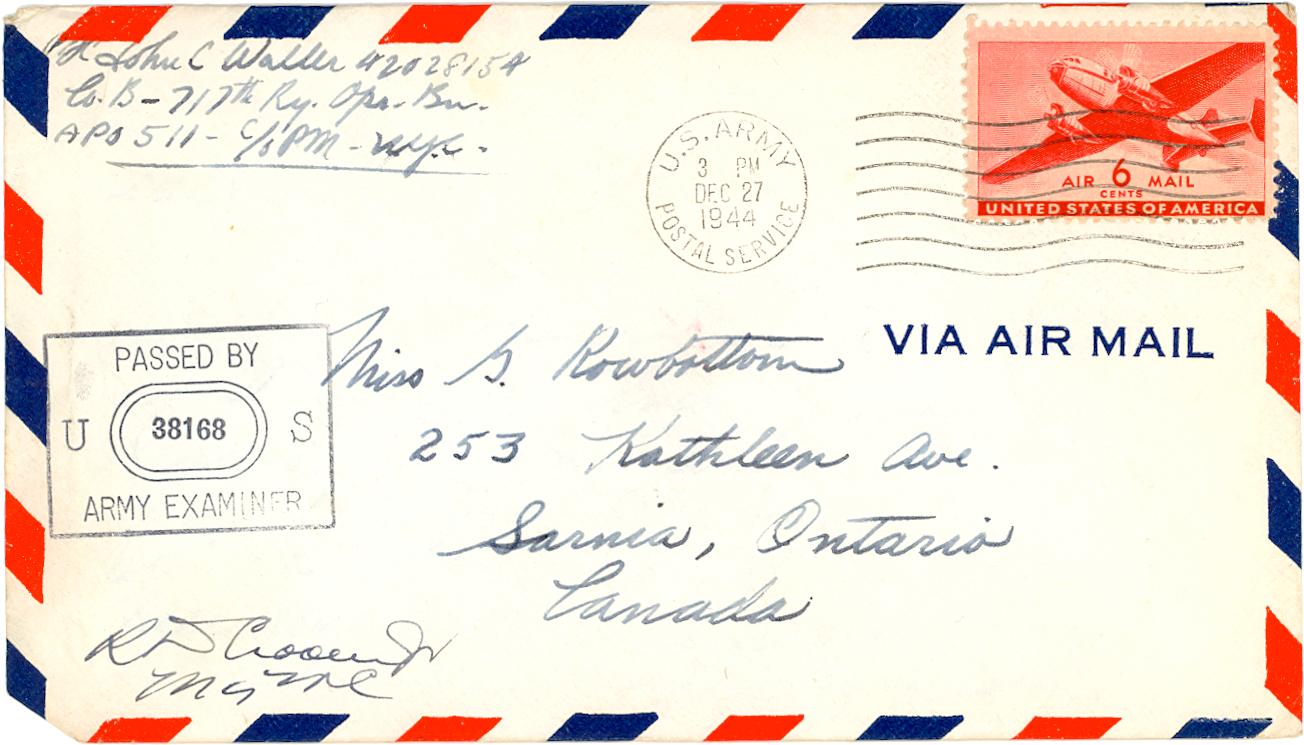 John C Waller 42028154
Co. B - 717th Ry. Opr. Bn.
APO 511 - c/o PM - NYC -
U.S. ARMY
3 PM
DEC 27
1944
POSTAL SERVICE
AIR 6 MAIL
CENTS
UNITED STATES OF AMERICA
VIA AIR MAIL
PASSED BY
U 38168 S
ARMY EXAMINER
Miss G. Rowbottom
253 Kathleen Ave.
Sarnia, Ontario
Canada